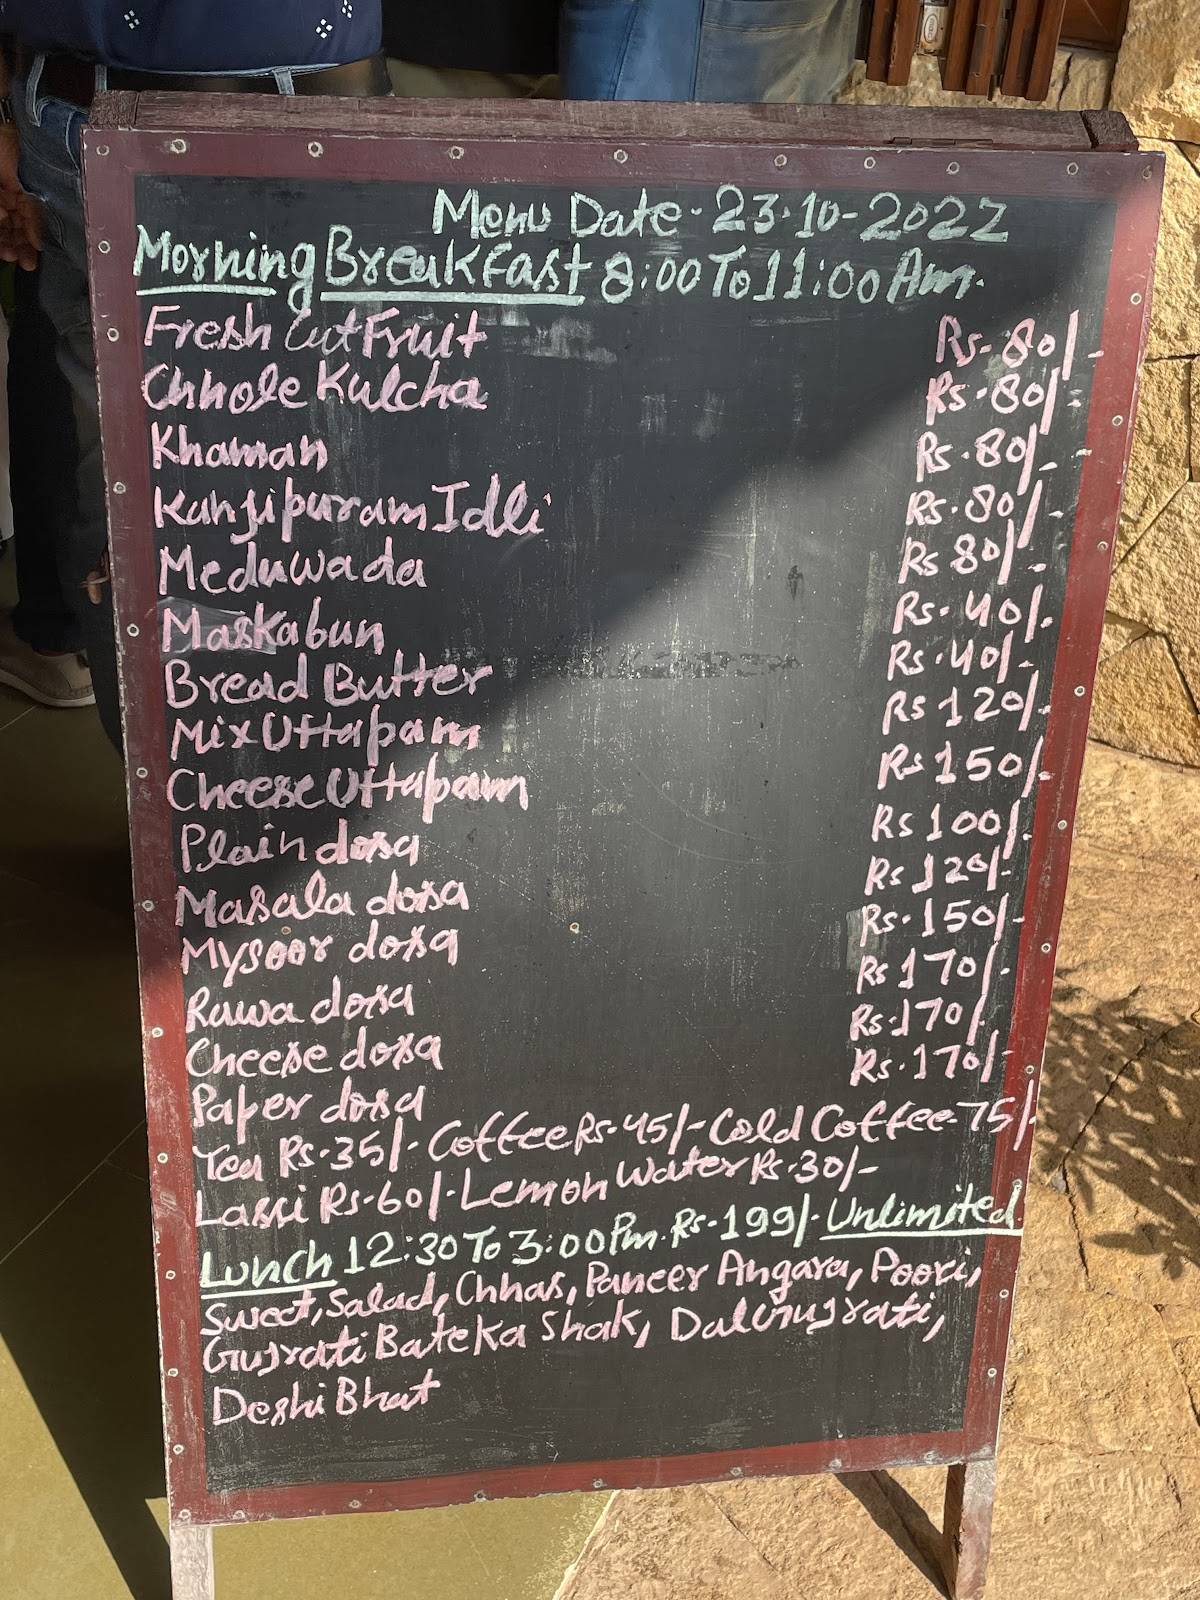 Menu Date-23-10-2022
Morning Breakfast 8:00 To 11:00 Am.
Fresh Cut Fruit Rs-80/-
Chhole Kulcha Rs-80/-
Khaman Rs-80/-
Kanjipuram Idli Rs-80/-
Meduwada Rs 80/-
Maskabun Rs-40/-
Bread Butter Rs-40/-
Mix Uttapam Rs 120/-
Cheese Uttapam Rs 150/-
Plain dosa Rs 100/-
Masala dosa Rs 120/-
Mysoor dosa Rs-150/-
Rawa dosa Rs 170/-
Cheese dosa Rs-170/-
Paper dosa Rs-170/-
Tea Rs-35/- Coffee Rs-45/- Cold Coffee-75/-
Lassi Rs-60/- Lemon Water Rs-30/-
Lunch 12:30 To 3:00 Pm. Rs-199/- Unlimited
Sweet, Salad, Chhas, Paneer Angara, Poori,
Gujrati Bateka Shak, Dal Gujrati,
Deshi Bhat